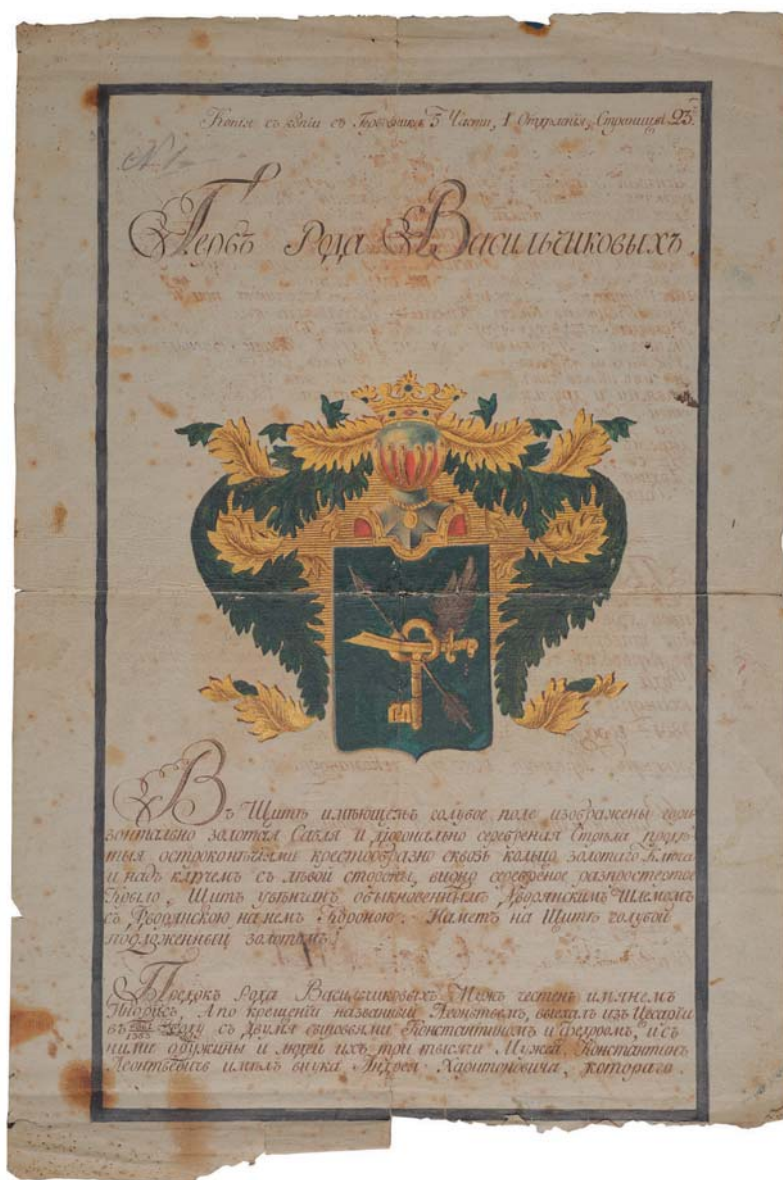 Копія съ копіи съ Гербовника 5 Части, 1 Отдѣленія, Страницы 23.
№ 1
Гербъ Рода Васильчиковыхъ.
Въ Щитѣ имѣющемъ голубое поле изображены гори
зонтально золотая Сабля и діагонально серебреная Стрѣла продѣ
тыя остроконечіями крестообразно сквозь кольцо золотаго Ключа
и надъ ключемъ съ лѣвой стороны, видно серебреное распростертое
Крыло, Щитъ увѣнчанъ обыкновеннымъ Дворянскимъ Шлемомъ
съ Дворянскою на немъ Короною. Наметъ на Щитѣ голубой
подложенный золотомъ.
Предокъ Рода Васильчиковыхъ Мужъ честенъ имянемъ
Индрисъ, А по крещеніи названный Леонтьемъ, выехалъ изъ Цесаріи
въ году съ двумя сыновьями Константиномъ и Федромъ, и съ
ними дружины и людей ихъ три тысячи Мужей. Константинъ
Леонтьевичь имѣлъ внука Андрея Харитоновича, котораго